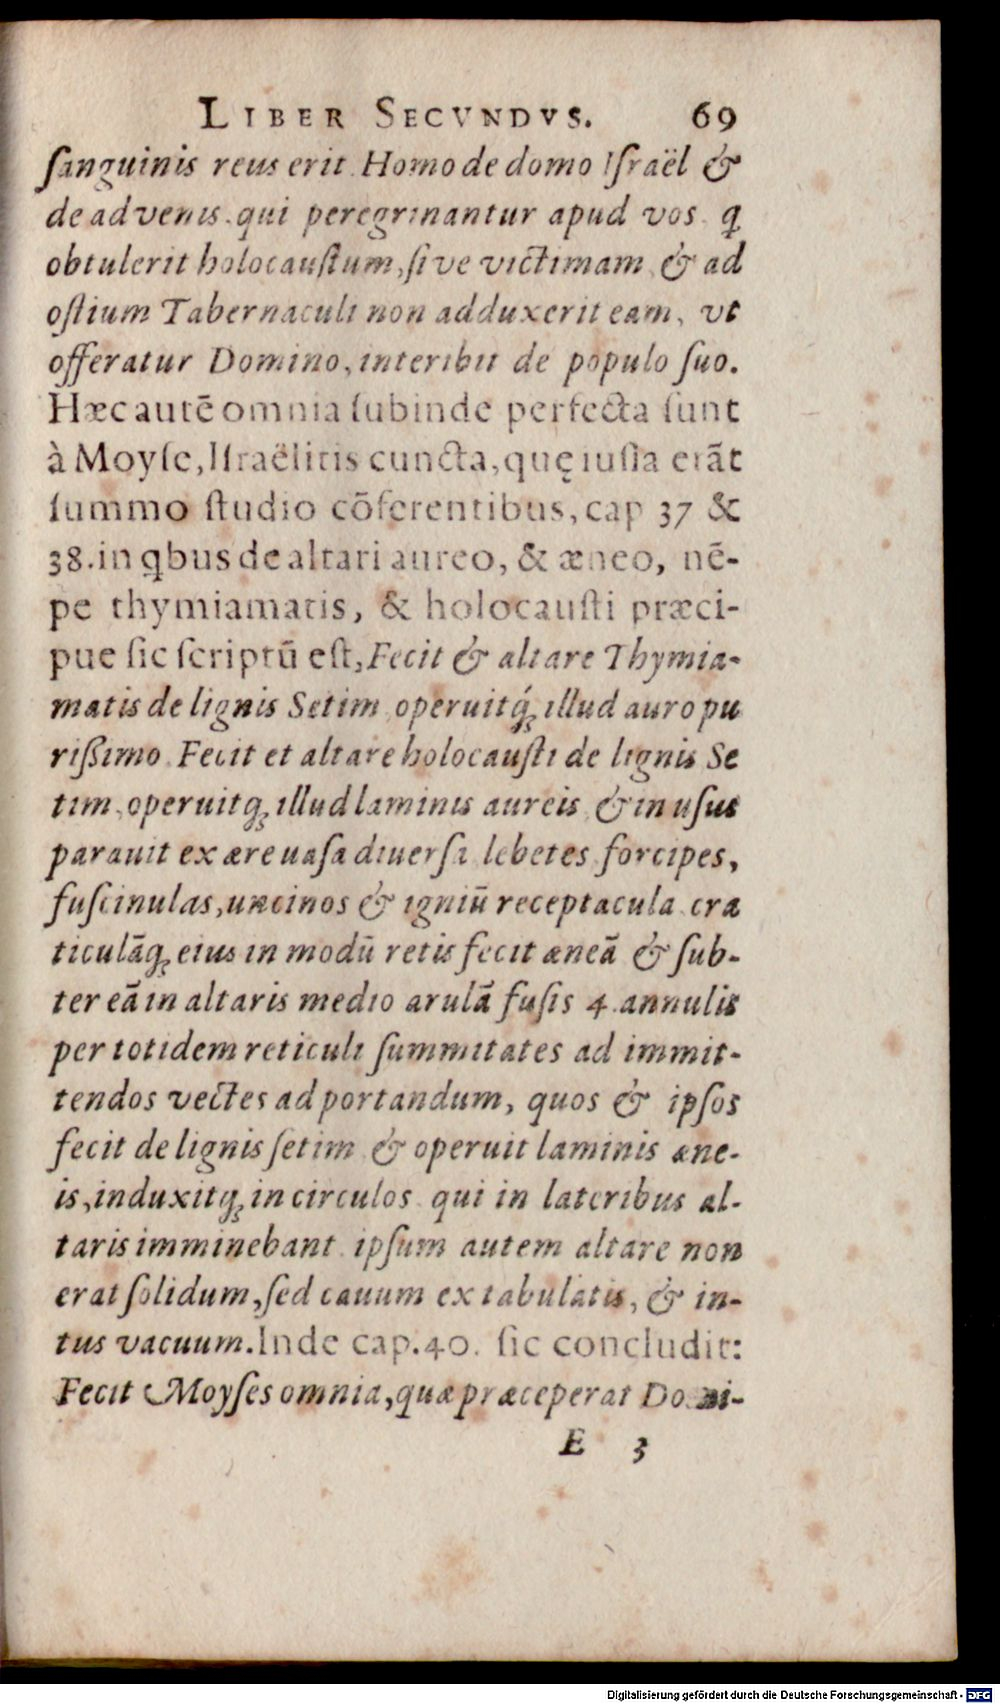 LIBER SECVNDVS. 69
ſanguinis reus erit. Homo de domo Iſraël &
de advenis. qui peregrinantur apud vos. ꝗ
obtulerit holocauſtum, ſive victimam, & ad
oſtium Tabernaculi non adduxerit eam, vt
offeratur Domino, interibit de populo ſuo.
Hæc autē omnia ſubinde perfecta ſunt
à Moyſe, Iſraëlitis cuncta, quę iuſſa erāt
ſummo ſtudio cōferentibus, cap 37 &
38. in ꝗbus de altari aureo, & æneo, nē-
pe thymiamatis, & holocauſti præci-
pue ſic ſcriptū eſt, Fecit & altare Thymia-
matis de lignis Setim, operuitq́ꝫ illud auro pu
riſſimo. Fecit et altare holocauſti de lignis Se
tim, operuitqꝫ illud laminis aureis, & in uſus
parauit ex ære uaſa diuerſa lebetes forcipes,
fuſcinulas, uncinos & igniū receptacula. cra
ticulāqꝫ eius in modū retis fecit æneā & ſub-
ter eā in altaris medio arulā fuſis 4. annulis
per totidem reticuli ſummitates ad immit-
tendos vectes ad portandum, quos & ipſos
fecit de lignis ſetim & operuit laminis æne-
is, induxitqꝫ in circulos. qui in lateribus al-
taris imminebant. ipſum autem altare non
erat ſolidum, ſed cauum ex tabulatis, & in-
tus vacuum. Inde cap. 40. ſic concludit:
Fecit Moyſes omnia, quæ præceperat Domi-
E 3
Digitalisierung gefördert durch die Deutsche Forschungsgemeinschaft - DFG